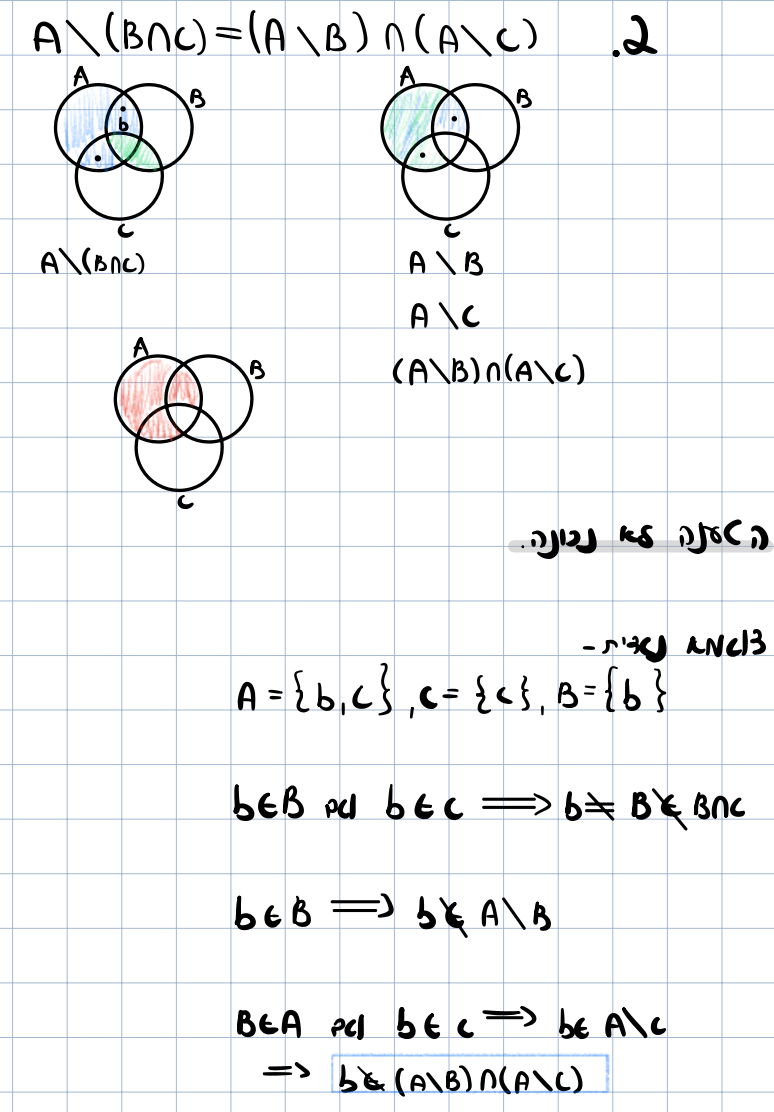 .2 A\(B∩C)=(A\B)∩(A\C)
A B b C
A\(B∩C)
A B C
A\B
A\C
(A\B)∩(A\C)
A B C
הטענה לא נכונה.
דוגמא נגדית -
A={b,c}, C={c}, B={b}
b∈B וגם b∈C ⟹ b≠ B∉ B∩C
b∈B ⟹ b∉ A\B
B∈A וגם b∈C ⟹ b∈ A\C
⟹ b∉(A\B)∩(A\C)